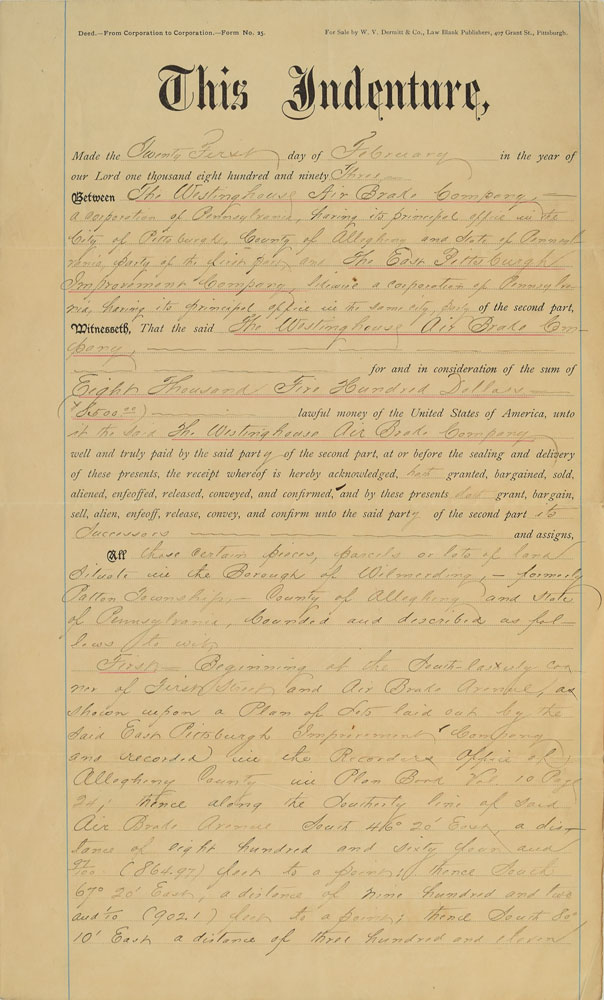 Deed.—From Corporation to Corporation.—Form No. 25. For Sale by W. V. Dermitt & Co., Law Blank Publishers, 407 Grant St., Pittsburgh.
This Indenture,
Made the Twenty First day of February in the year of
our Lord one thousand eight hundred and ninety Three
Between The Westinghouse Air Brake Company,
a corporation of Pennsylvania, having its principal office in the
City of Pittsburgh, County of Allegheny and State of Pennsyl-
vania, party of the first part, and The East Pittsburgh
Improvement Company, likewise a corporation of Pennsylva-
nia, having its principal office in the same city, party of the second part,
Witnesseth, That the said The Westinghouse Air Brake Com-
pany,
for and in consideration of the sum of
Eight Thousand Five Hundred Dollars
($8500.00) lawful money of the United States of America, unto
it the said The Westinghouse Air Brake Company
well and truly paid by the said party of the second part, at or before the sealing and delivery
of these presents, the receipt whereof is hereby acknowledged, hath granted, bargained, sold,
aliened, enfeoffed, released, conveyed, and confirmed, and by these presents doth grant, bargain,
sell, alien, enfeoff, release, convey, and confirm unto the said party of the second part its
Successors and assigns,
All those certain pieces, parcels or lots of land
situate in the Borough of Wilmerding, — formerly
Patton Township, — County of Allegheny and State
of Pennsylvania, bounded and described as fol-
lows to wit,
First — Beginning at the South-easterly cor-
ner of First Street and Air Brake Avenue, as
shown upon a Plan of Lots laid out by the
said East Pittsburgh Improvement Company
and recorded in the Recorders Office of
Allegheny County in Plan Book Vol. 10 Page
24, thence along the Southerly line of said
Air Brake Avenue South 46° 20' East, a dis-
tance of eight hundred and sixty four and
97/100 (864.97) feet to a point; thence South
67° 20' East, a distance of nine hundred and two
and 1/10 (902.1) feet to a point; thence South 80°
10' East a distance of three hundred and eleven